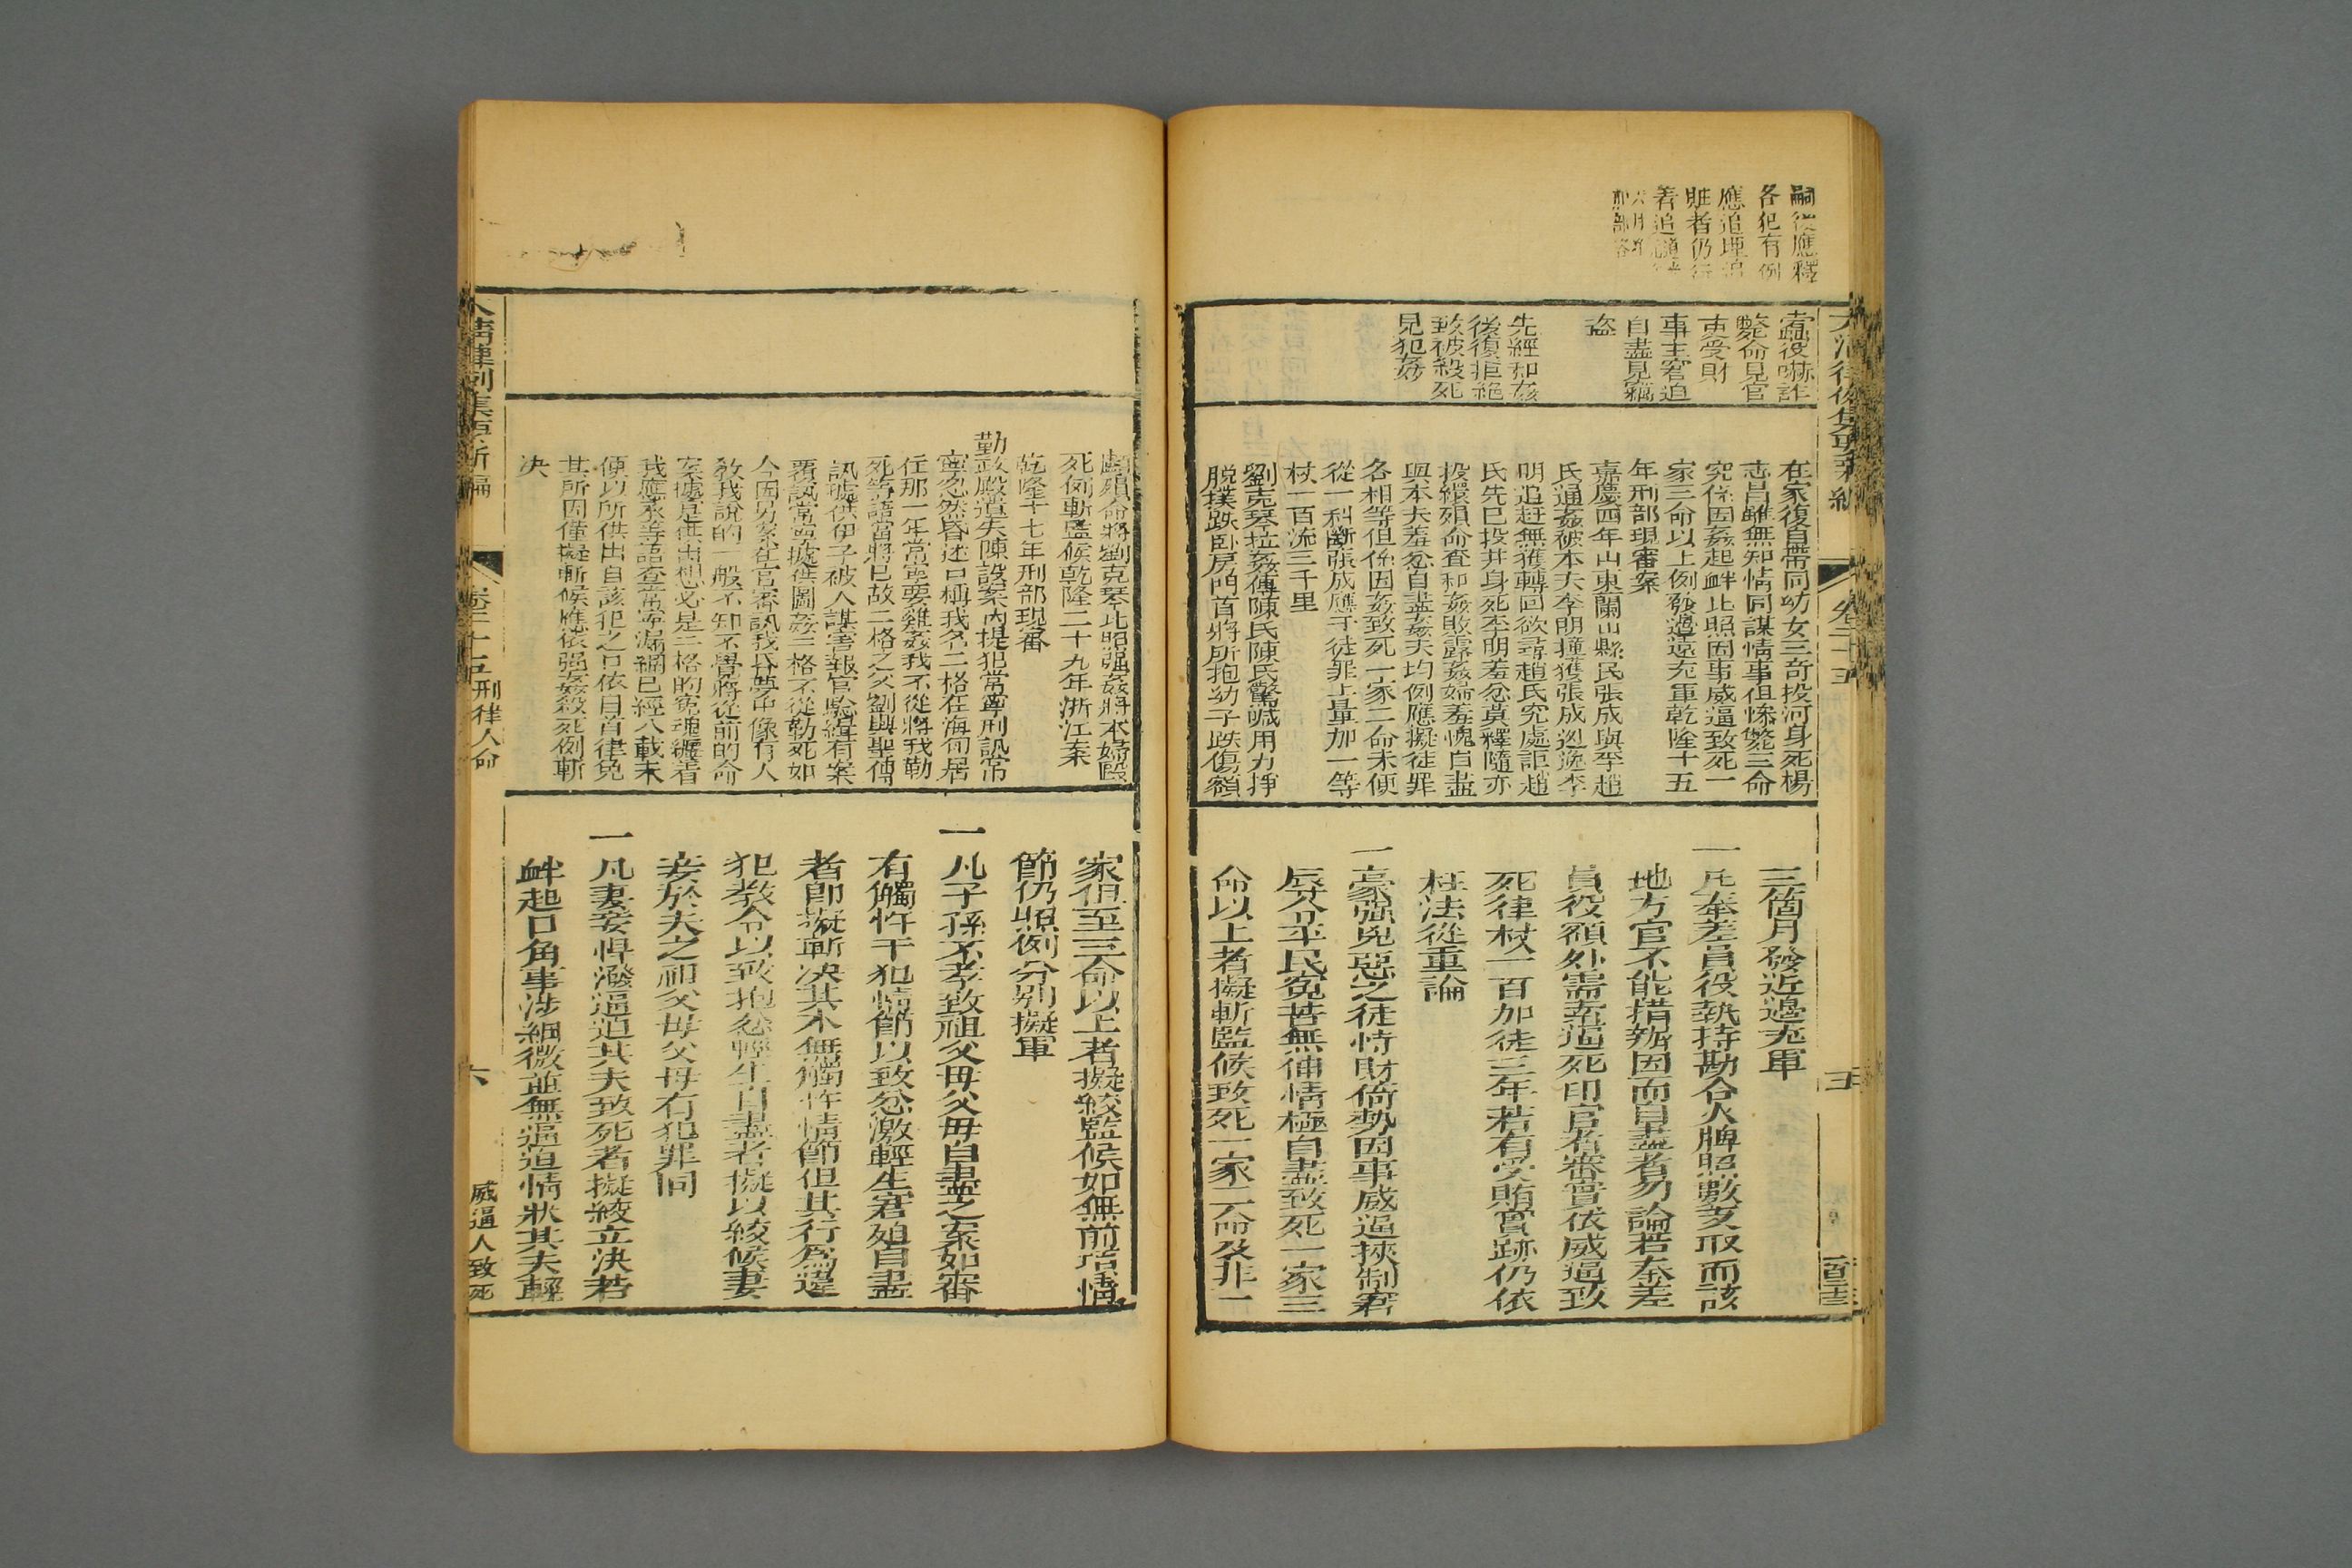 嗣後應釋
各犯有例
應追埋追
賍者仍行
善追
大清律例集要新編
卷二十五
五
蠧役嚇詐
斃命見官
吏受財
事主窘迫
自盡見竊
盜
先經和姦
後復拒絕
致被殺死
見犯姦
在家復自帶同幼女三奇投河身死楊
志昌雖無知情同謀情事但慘斃三命
究係因姦起衅比照因事威逼致死一
家三命以上例發邊遠充軍乾隆十五
年刑部現審案
嘉慶四年山東蘭山縣民張成與李趙
氏通姦被本夫李明撞獲張成逃逸李
明追赶無獲轉回欲尋趙氏究處詎趙
氏先已投井身死李明羞忿莫釋隨亦
投繯殞命查和姦敗露姦婦羞愧自盡
與本夫羞忿自盡姦夫均例應擬徒罪
各相等但係因姦致死一家二命未便
從一科斷張成應于徒罪上量加一等
杖一百流三千里
劉克琴拉姦傅陳氏陳氏驚喊用力掙
脫撲跌臥房門首將所抱幼子跌傷額
三箇月發近邊充軍
一凡奉差員役執持勘合火牌照數支取而該
地方官不能措辦因而自盡者勿論若奉差
員役額外需索逼死印官者審實依威逼致
死律杖一百加徒三年若有受賄實跡仍依
枉法從重論
一豪強兇惡之徒恃財倚勢因事威逼挾制窘
辱令平民寃苦無伸情極自盡致死一家三
命以上者擬斬監候致死一家二命及非一
顱殞命將劉克琴比照强姦將本婦毆
死例斬監候乾隆二十九年浙江案
乾隆十七年刑部現審
勤政殿遺失陳設案內提犯常寧刑訊常
寧忽然昏迷口稱我名二格在海甸居
住那一年常寧要雞姦我不從將我勒
死等語當將已故二格之父劉興聖傳
訊據供伊子被人謀害報官驗緝有案
覆訊常寧據供圖姦二格不從勒死如
今因另案在官審訊我昏夢中像有人
教我說的一般不知不覺將從前的命
案據實供出想必是二格的寃魂纏着
我應承等語查常寧漏網已經八載未
便以所供出自該犯之口依自首律免
其所因僅擬斬候應依强姦殺死例斬
決
家但至三命以上者擬絞監候如無前項情
節仍照例分別擬軍
一凡子孫不孝致祖父母父母自盡之案如審
有觸忤干犯情節以致忿激輕生窘廹自盡
者卽擬斬決其本無觸忤情節但其行爲違
犯教令以致抱忿輕生自盡者擬以絞候妻
妾於夫之祖父母父母有犯罪同
一凡妻妾悍潑逼迫其夫致死者擬絞立決若
衅起口角事涉細微並無逼迫情狀其夫輕
大清律例集要新編
卷二十五刑律人命
六
威逼人致死